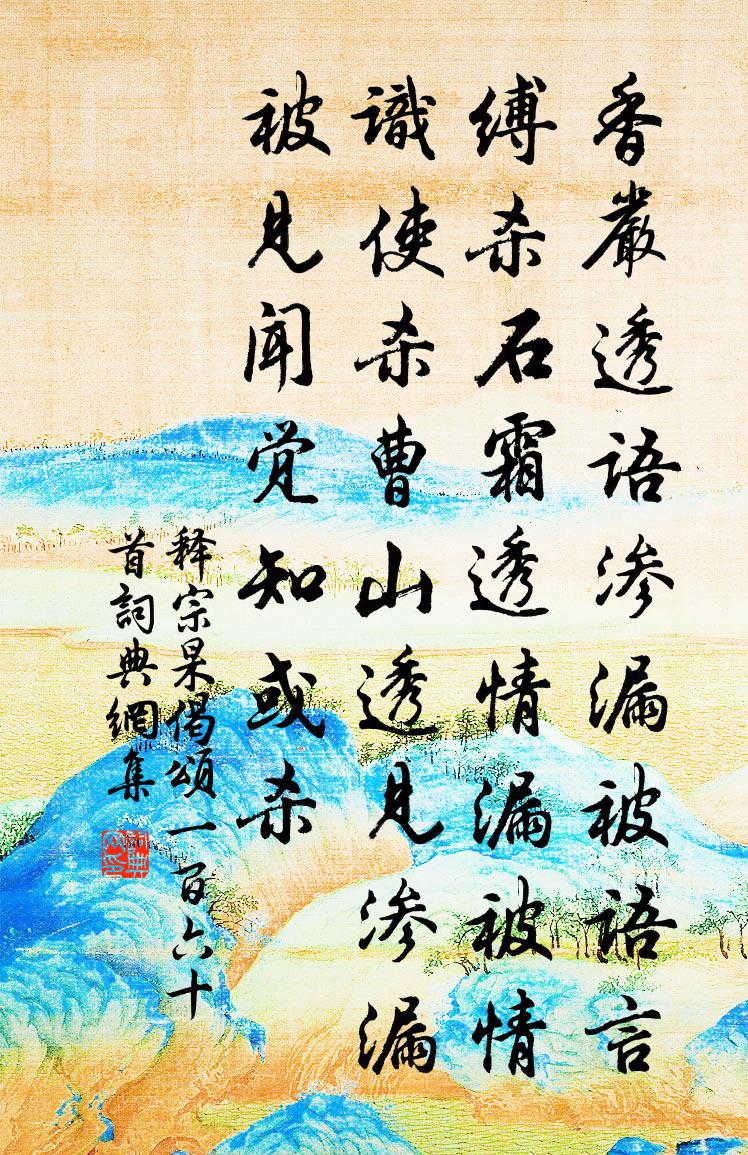 香嚴透語渗漏被語言
缚杀石霜透情漏被情
識使杀曹山透見渗漏
被見闻觉知或杀
释宗杲偈頌一百六十
首詞典網集